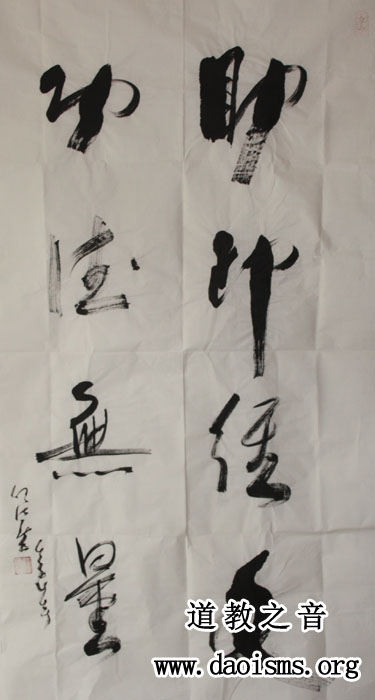 助印經文
功德無量
任法融
道教之音
www.daoisms.org